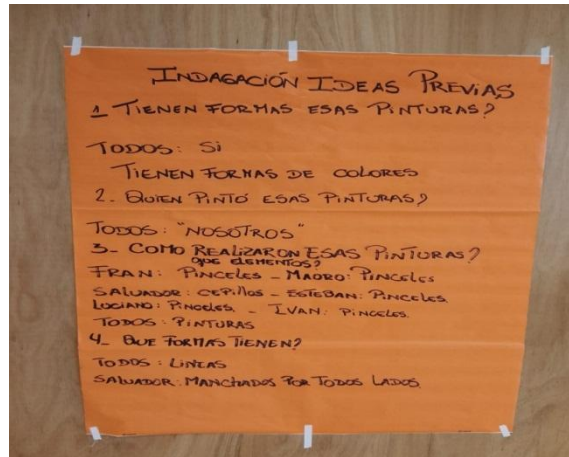 INDAGACIÓN IDEAS PREVIAS
1 TIENEN FORMAS ESAS PINTURAS?
TODOS: Si
TIENEN FORMAS DE COLORES
2. QUIEN PINTÓ ESAS PINTURAS?
TODOS: "NOSOTROS"
3- COMO REALIZARON ESAS PINTURAS?
QUE ELEMENTOS?
FRAN: PINCELES - MADRO: PINCELES
SALVADOR: CEPILLOS - ESTEBAN: PINCELES
LUCIANO: PINCELES. - IVAN: PINCELES.
TODOS: PINTURAS
4- QUE FORMAS TIENEN?
TODOS: LINEAS
SALVADOR: MANCHADOS POR TODOS LADOS.